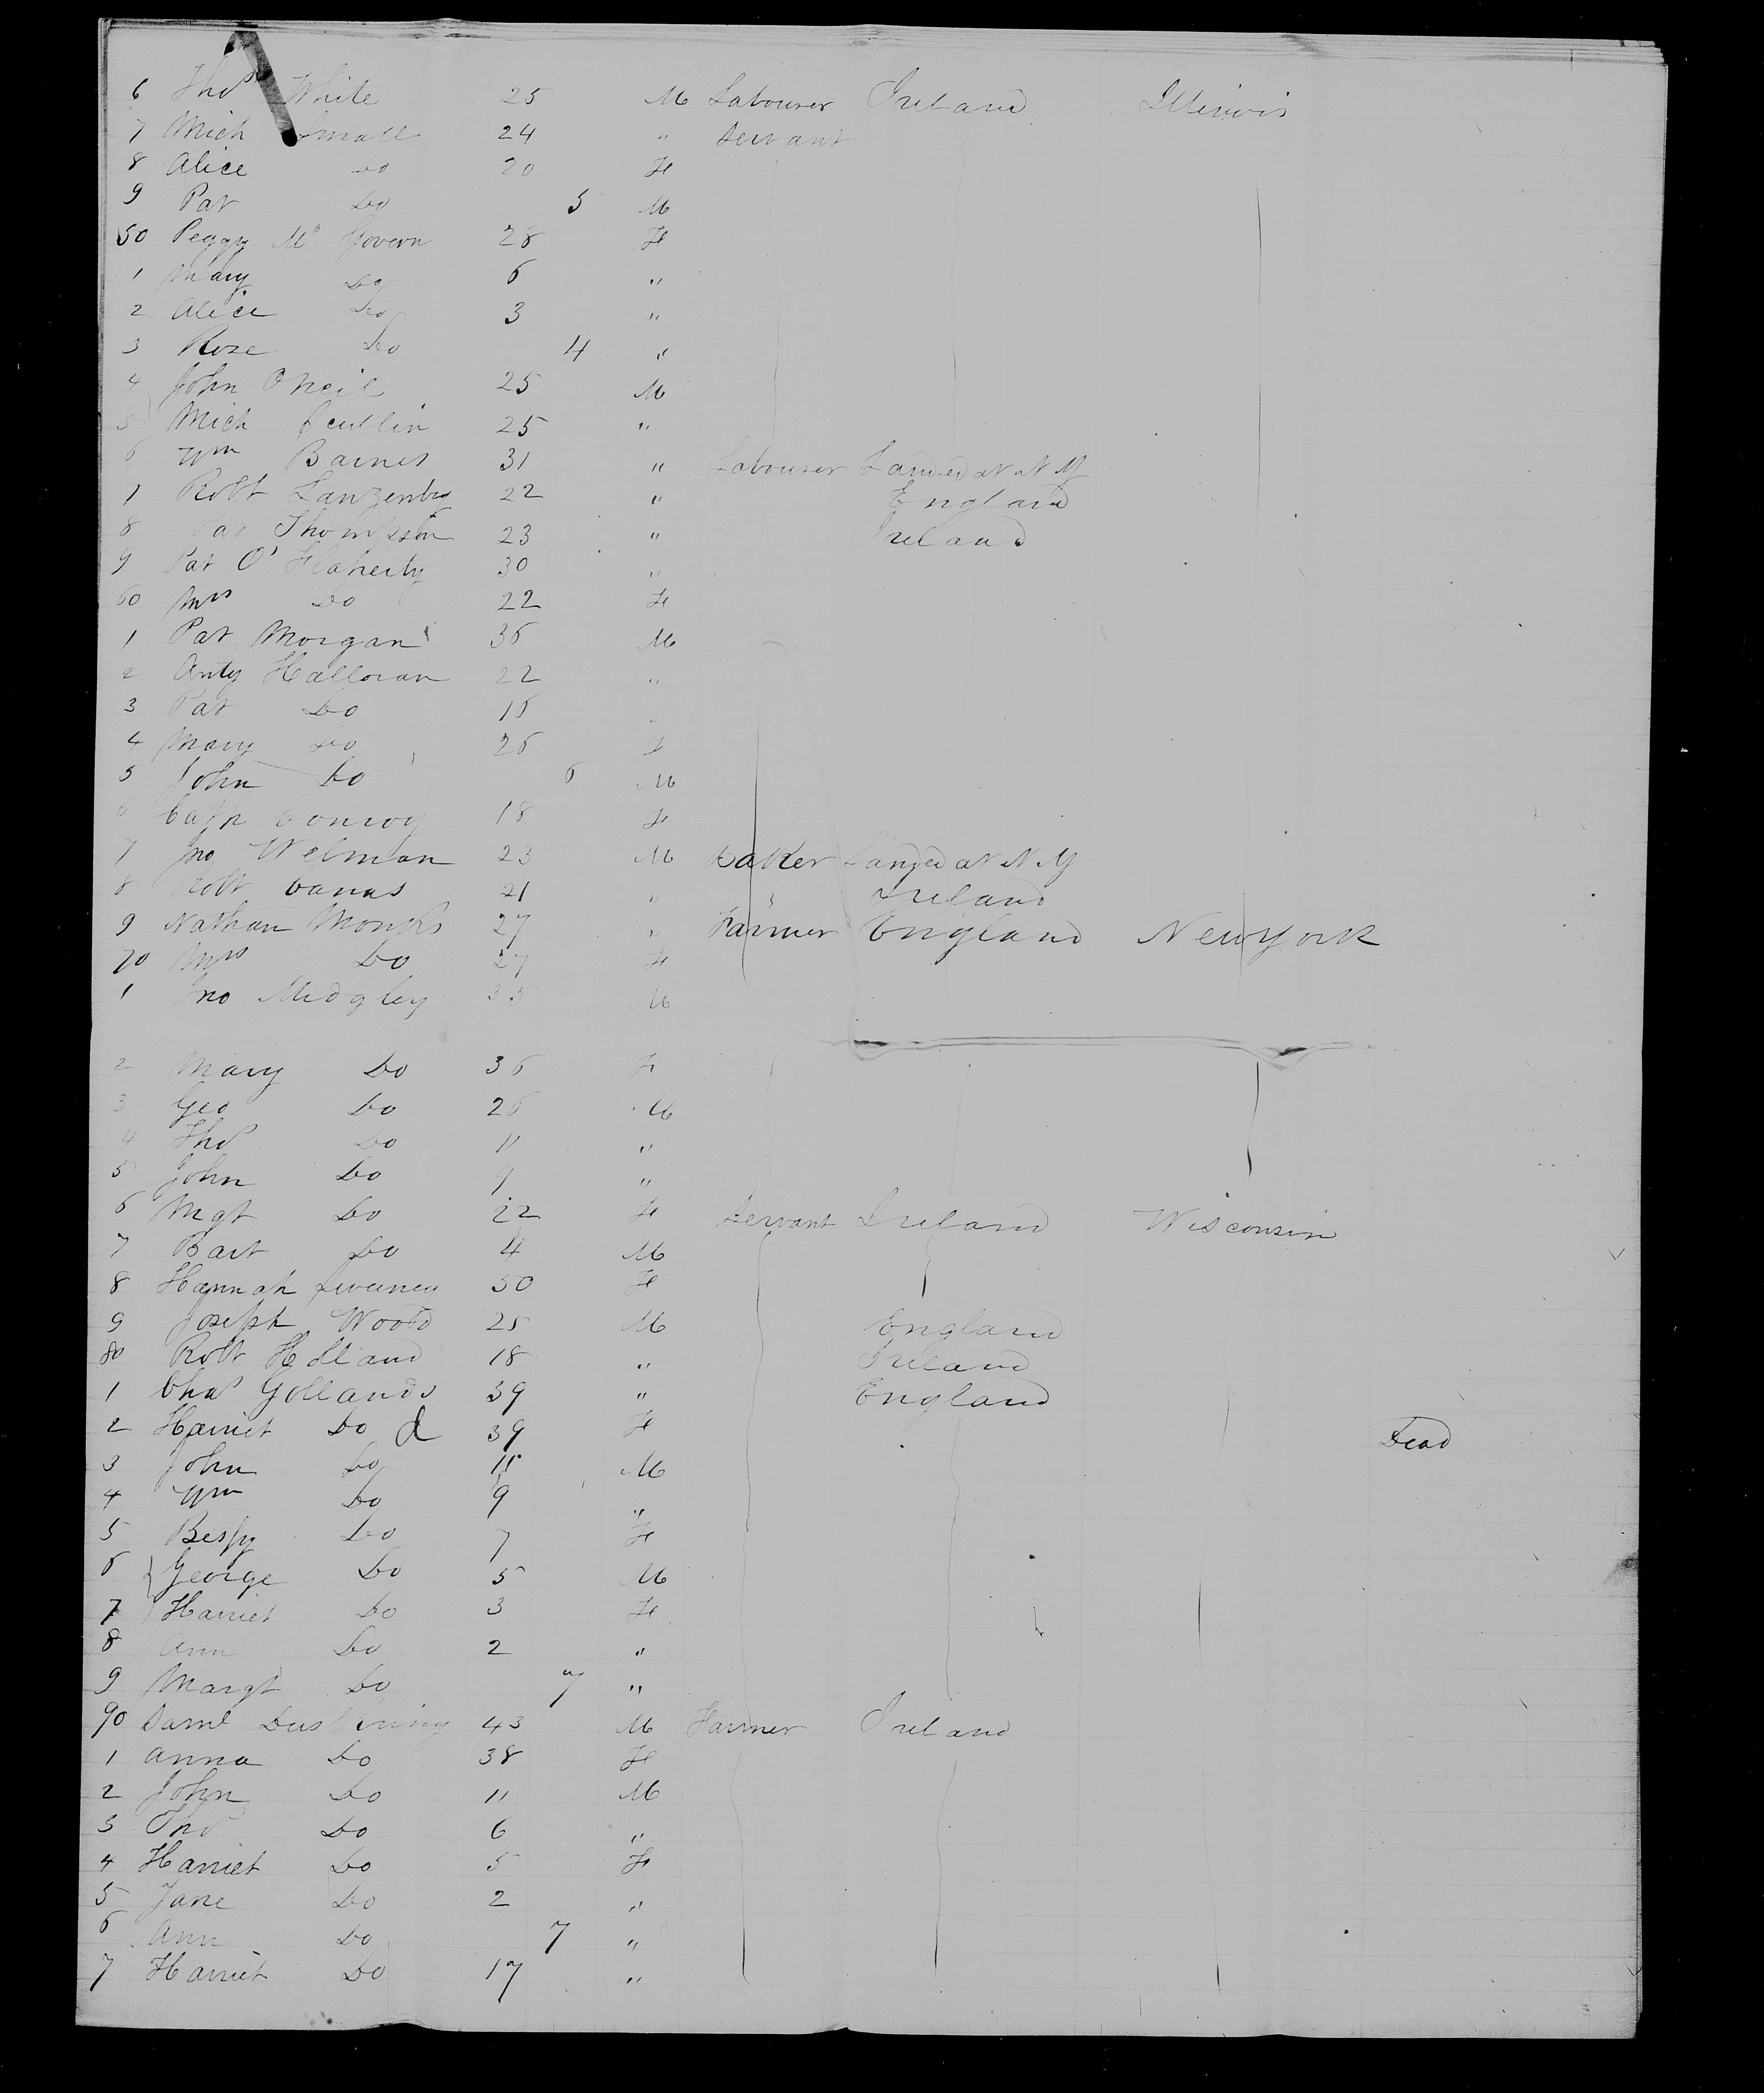 6 Thos White 25 M Labourer Ireland Illinois
7 Mich Small 24 " Servant
8 Alice Do 20 F
9 Pat Do 5 M
50 Peggy Mc Govern 28 F
1 Mary Do 6 "
2 Alice Do 3 "
3 Rose Do 4 "
4 John O'Neil 25 M
5 Mich Scullin 25 "
6 Wm Barnes 31 " Labourer Landed at N Y
7 Robt Lanzenby 22 " England
8 Pat Thompson 23 " Ireland
9 Pat O' Flaherty 30 "
60 Mrs Do 22 F
1 Pat Morgan 36 M
2 Anty Halloran 22 "
3 Pat Do 16 "
4 Mary Do 26 F
5 John Do 6 M
6 Cath Conroy 18 F
7 Jno Welman 23 M Baker Landed at N Y
8 Robt 21 " " Ireland
9 Nathan Monks 27 " Farmer England New York
70 Mrs Do 27 F
1 Jno Midgley 35 M
2 Mary Do 36 F
3 Geo Do 26 M
4 Thos Do 11 "
5 John Do 9 "
6 Mgt Do 22 F Servant Ireland Wisconsin
7 Bart Do 4 M
8 Hannah Sweeney 50 F
9 Joseph Wood 25 M England
80 Robt Holland 18 " Ireland
1 Chas Gollands 39 " England
2 Harriet Do d 39 F Dead
3 John Do 11 M
4 Wm Do 9 "
5 Bessy Do 7 F
6 George Do 5 M
7 Harriet Do 3 F
8 Ann Do 2 "
9 Margt Do 7 "
90 Saml 43 M Farmer Ireland
1 Anna Do 38 F
2 John Do 11 M
3 Thos Do 6 "
4 Harriet Do 5 F
5 Jane Do 2 "
6 Ann Do 7 "
7 Harriet Do 17 "